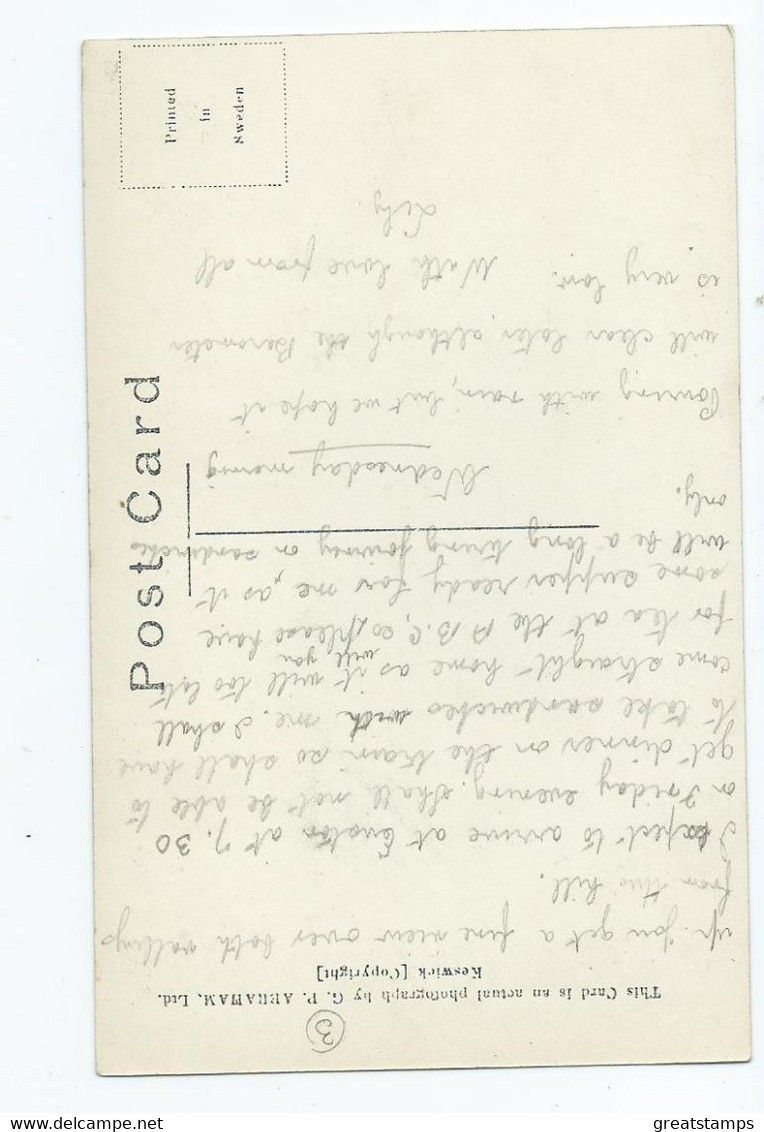 3
This Card is an actual photograph by G. P. ABRAHAM, Ltd.
Keswick [Copyright]
up. You get a fine view over both valleys
from this hill.
I expect to arrive at Euston at 7.30
on Friday evening. Shall not be able to
get dinner on the train so shall have
to take sandwiches with me. I shall
come straight home as it will too late
for tea at the A B.C, so please have
will you
some supper ready for me, as it
will be a long tiring journey on sandwiches
only.
Wednesday morning
Pouring with rain, but we hope it
will clear later although the Barometer
is very low. With love from all
Post Card
Printed
in
Sweden
greatstamps